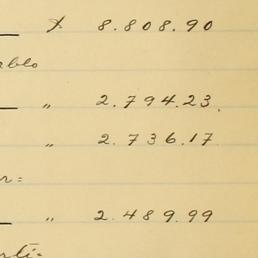 $ 8.808.90
ablo
„ 2.794.23.
„ 2.736.17
r=
„ 2.489.99
rti=